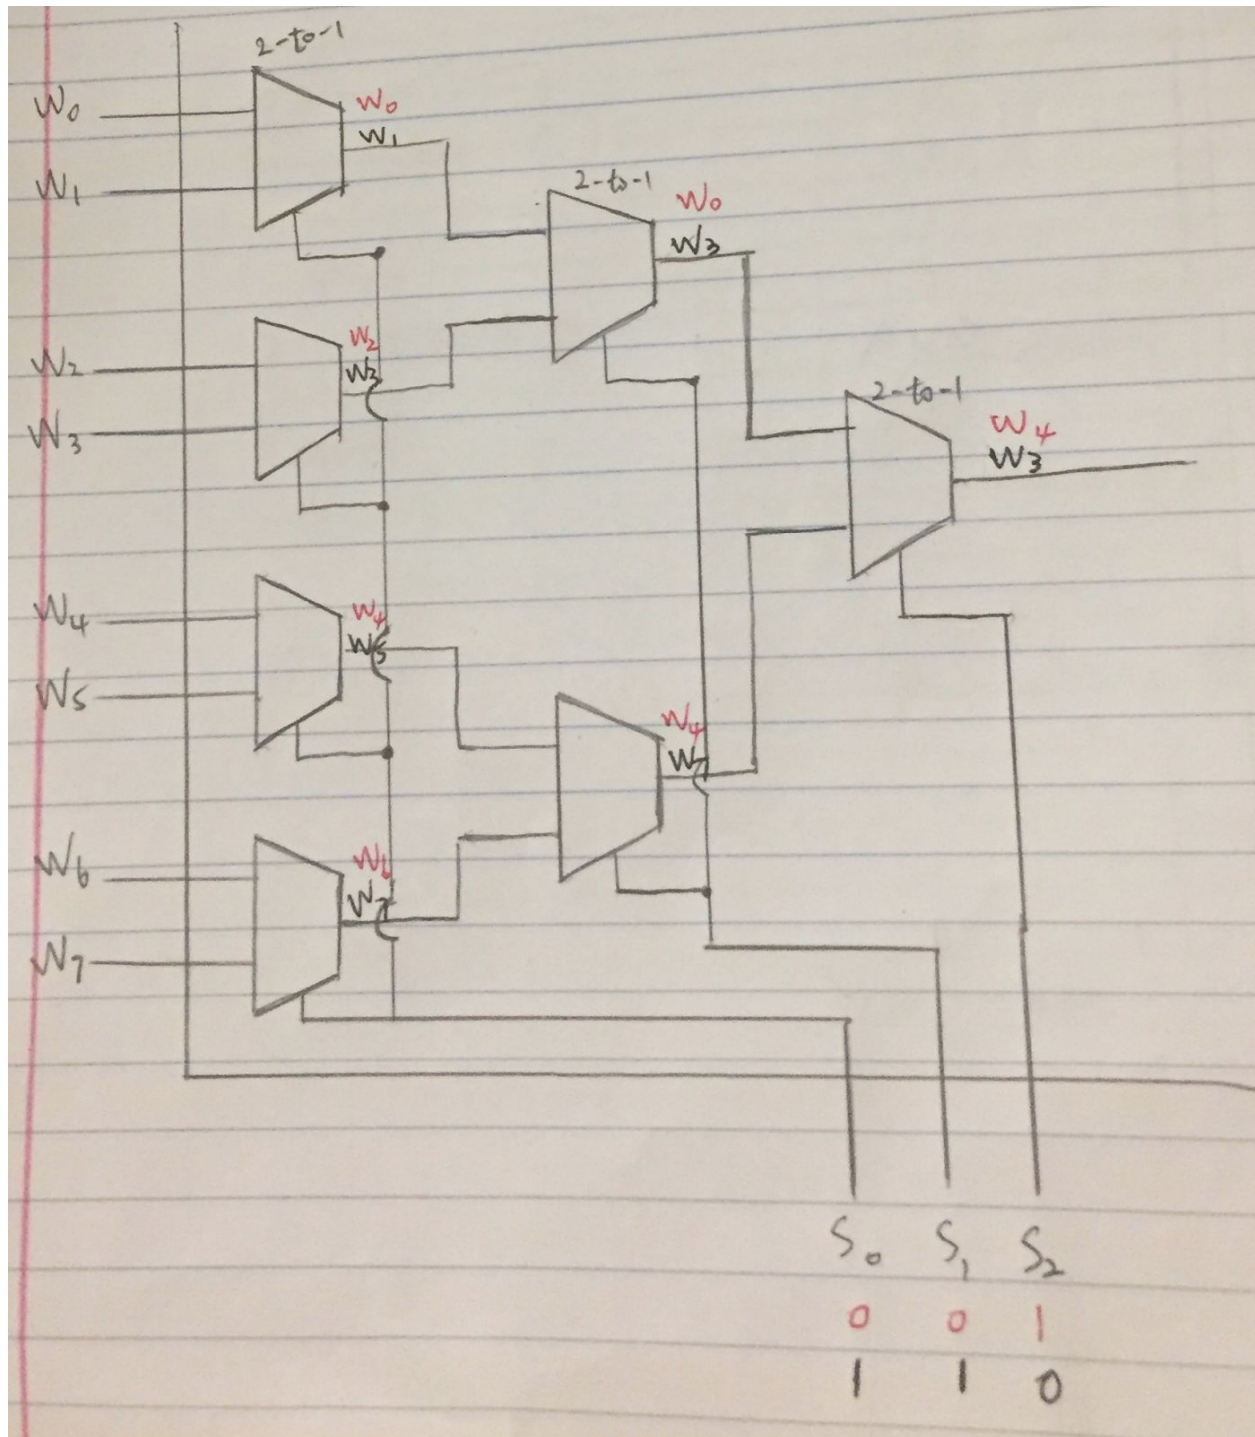 2-to-1
W0
W0
W1
W1
2-to-1
W0
W3
W2
W2
W3
W3
2-to-1
W4
W3
W4
W4
W5
W5
W4
W6
W6
W7
W7
S0 S1 S2
0 0 1
1 1 0